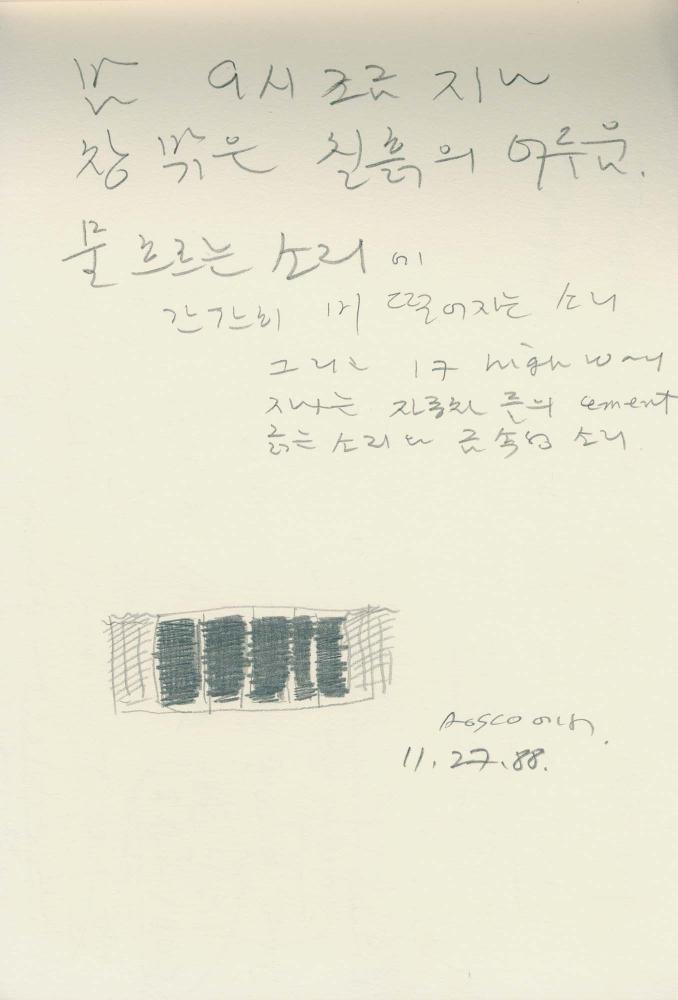 밤 9시 조금 지나
창 밖은 칠흙의 어두움.
물 흐르는 소리에
간간히 비 떨어지는 소리
그리고 17 high way
지나는 자동차 들의 cement
긁는 소리와 금속성 소리
에서.
11.27.88.